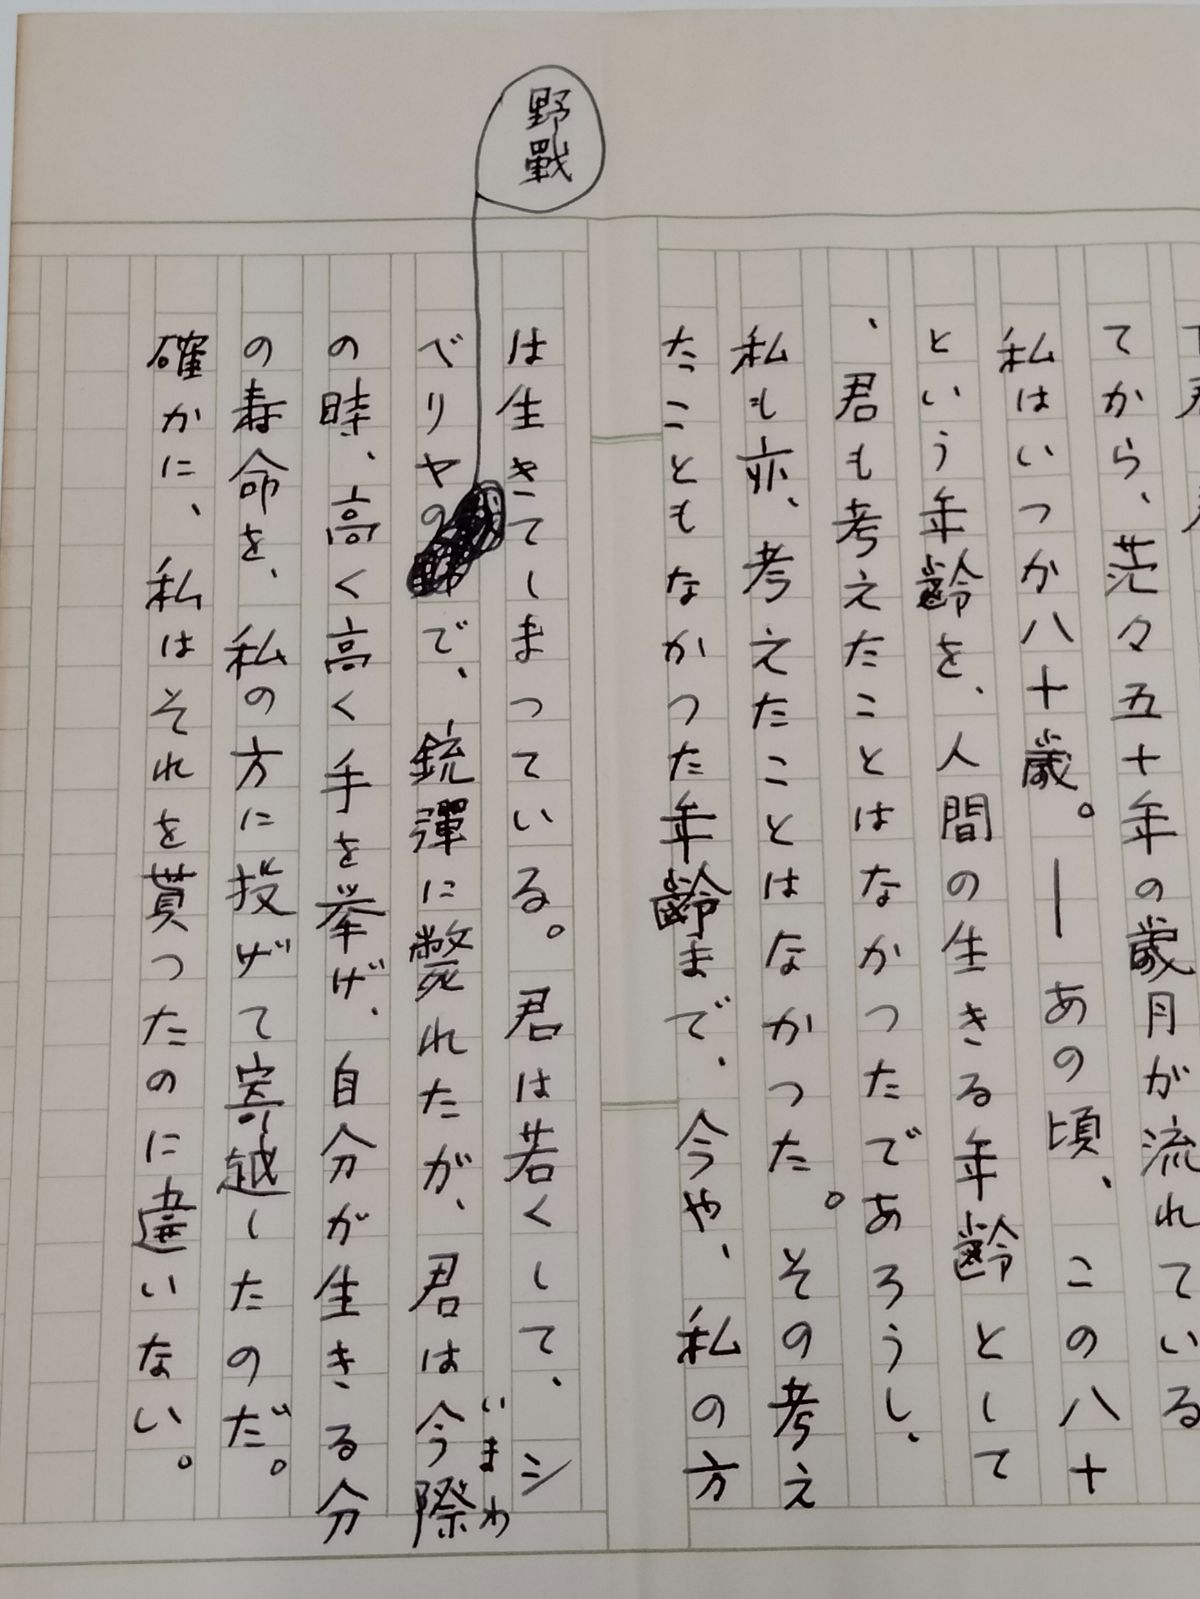 てから、茫々五十年の歳月が流れている
私はいつか八十歳。―あの頃、この八十
という年齢を、人間の生きる年齢として
、君も考えたことはなかったであろうし、
私も亦、考えたことはなかつた。その考え
たこともなかつた年齢まで、今や、私の方
は生きてしまっている。君は若くして、シ
野戰
ベリヤので、銃彈に斃れたが、君は今際
いまわ
の時、高く高く手を挙げ、自分が生きる分
の寿命を、私の方に投げて寄越したのだ。
確かに、私はそれを貰つたのに違いない。